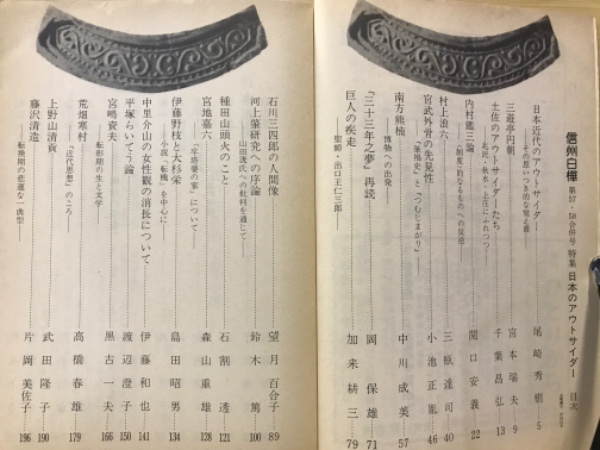 信州白樺 第57・58合併号 特集 日本のアウトサイダー 目次
日本近代のアウトサイダー 尾崎秀樹 5
三遊亭円朝 宮本瑞夫 9
土佐のアウトサイダーたち 千葉昌弘 13
―兆民・秋水・上庄にふれつつ―
内村鑑三論 関口安義 22
―制度的なるものへの反逆―
村上浪六 三瓶達司 40
宮武外骨の先見性 小池正胤 46
―『筆禍史』と『つむじまがり』―
南方熊楠 中川成美 57
―博物への出発―
『三十三年之夢』再読 岡保雄 71
巨人の疾走 加来耕三 79
―聖師・出口王仁三郎―
石川三四郎の人間像 望月百合子 89
河上肇研究への序論 鈴木篤 100
―山田洸氏への批判を通して―
種田山頭火のこと 石割透 121
宮地嘉六 森山重雄 128
―について―
伊藤野枝と大杉栄 島田昭男 134
―小説「転機」を中心に―
中里介山の女性観の消長について 伊藤和也 141
平塚らいてう論 渡辺澄子 150
宮嶋資夫 黒古一夫 166
―転形期の生と文学
荒畑寒村 高橋春雄 179
―『近代思想』のころ
上野山清貢 武田隆子 190
藤沢清造 片岡美佐子 196
―転換期の悲運な一典型―